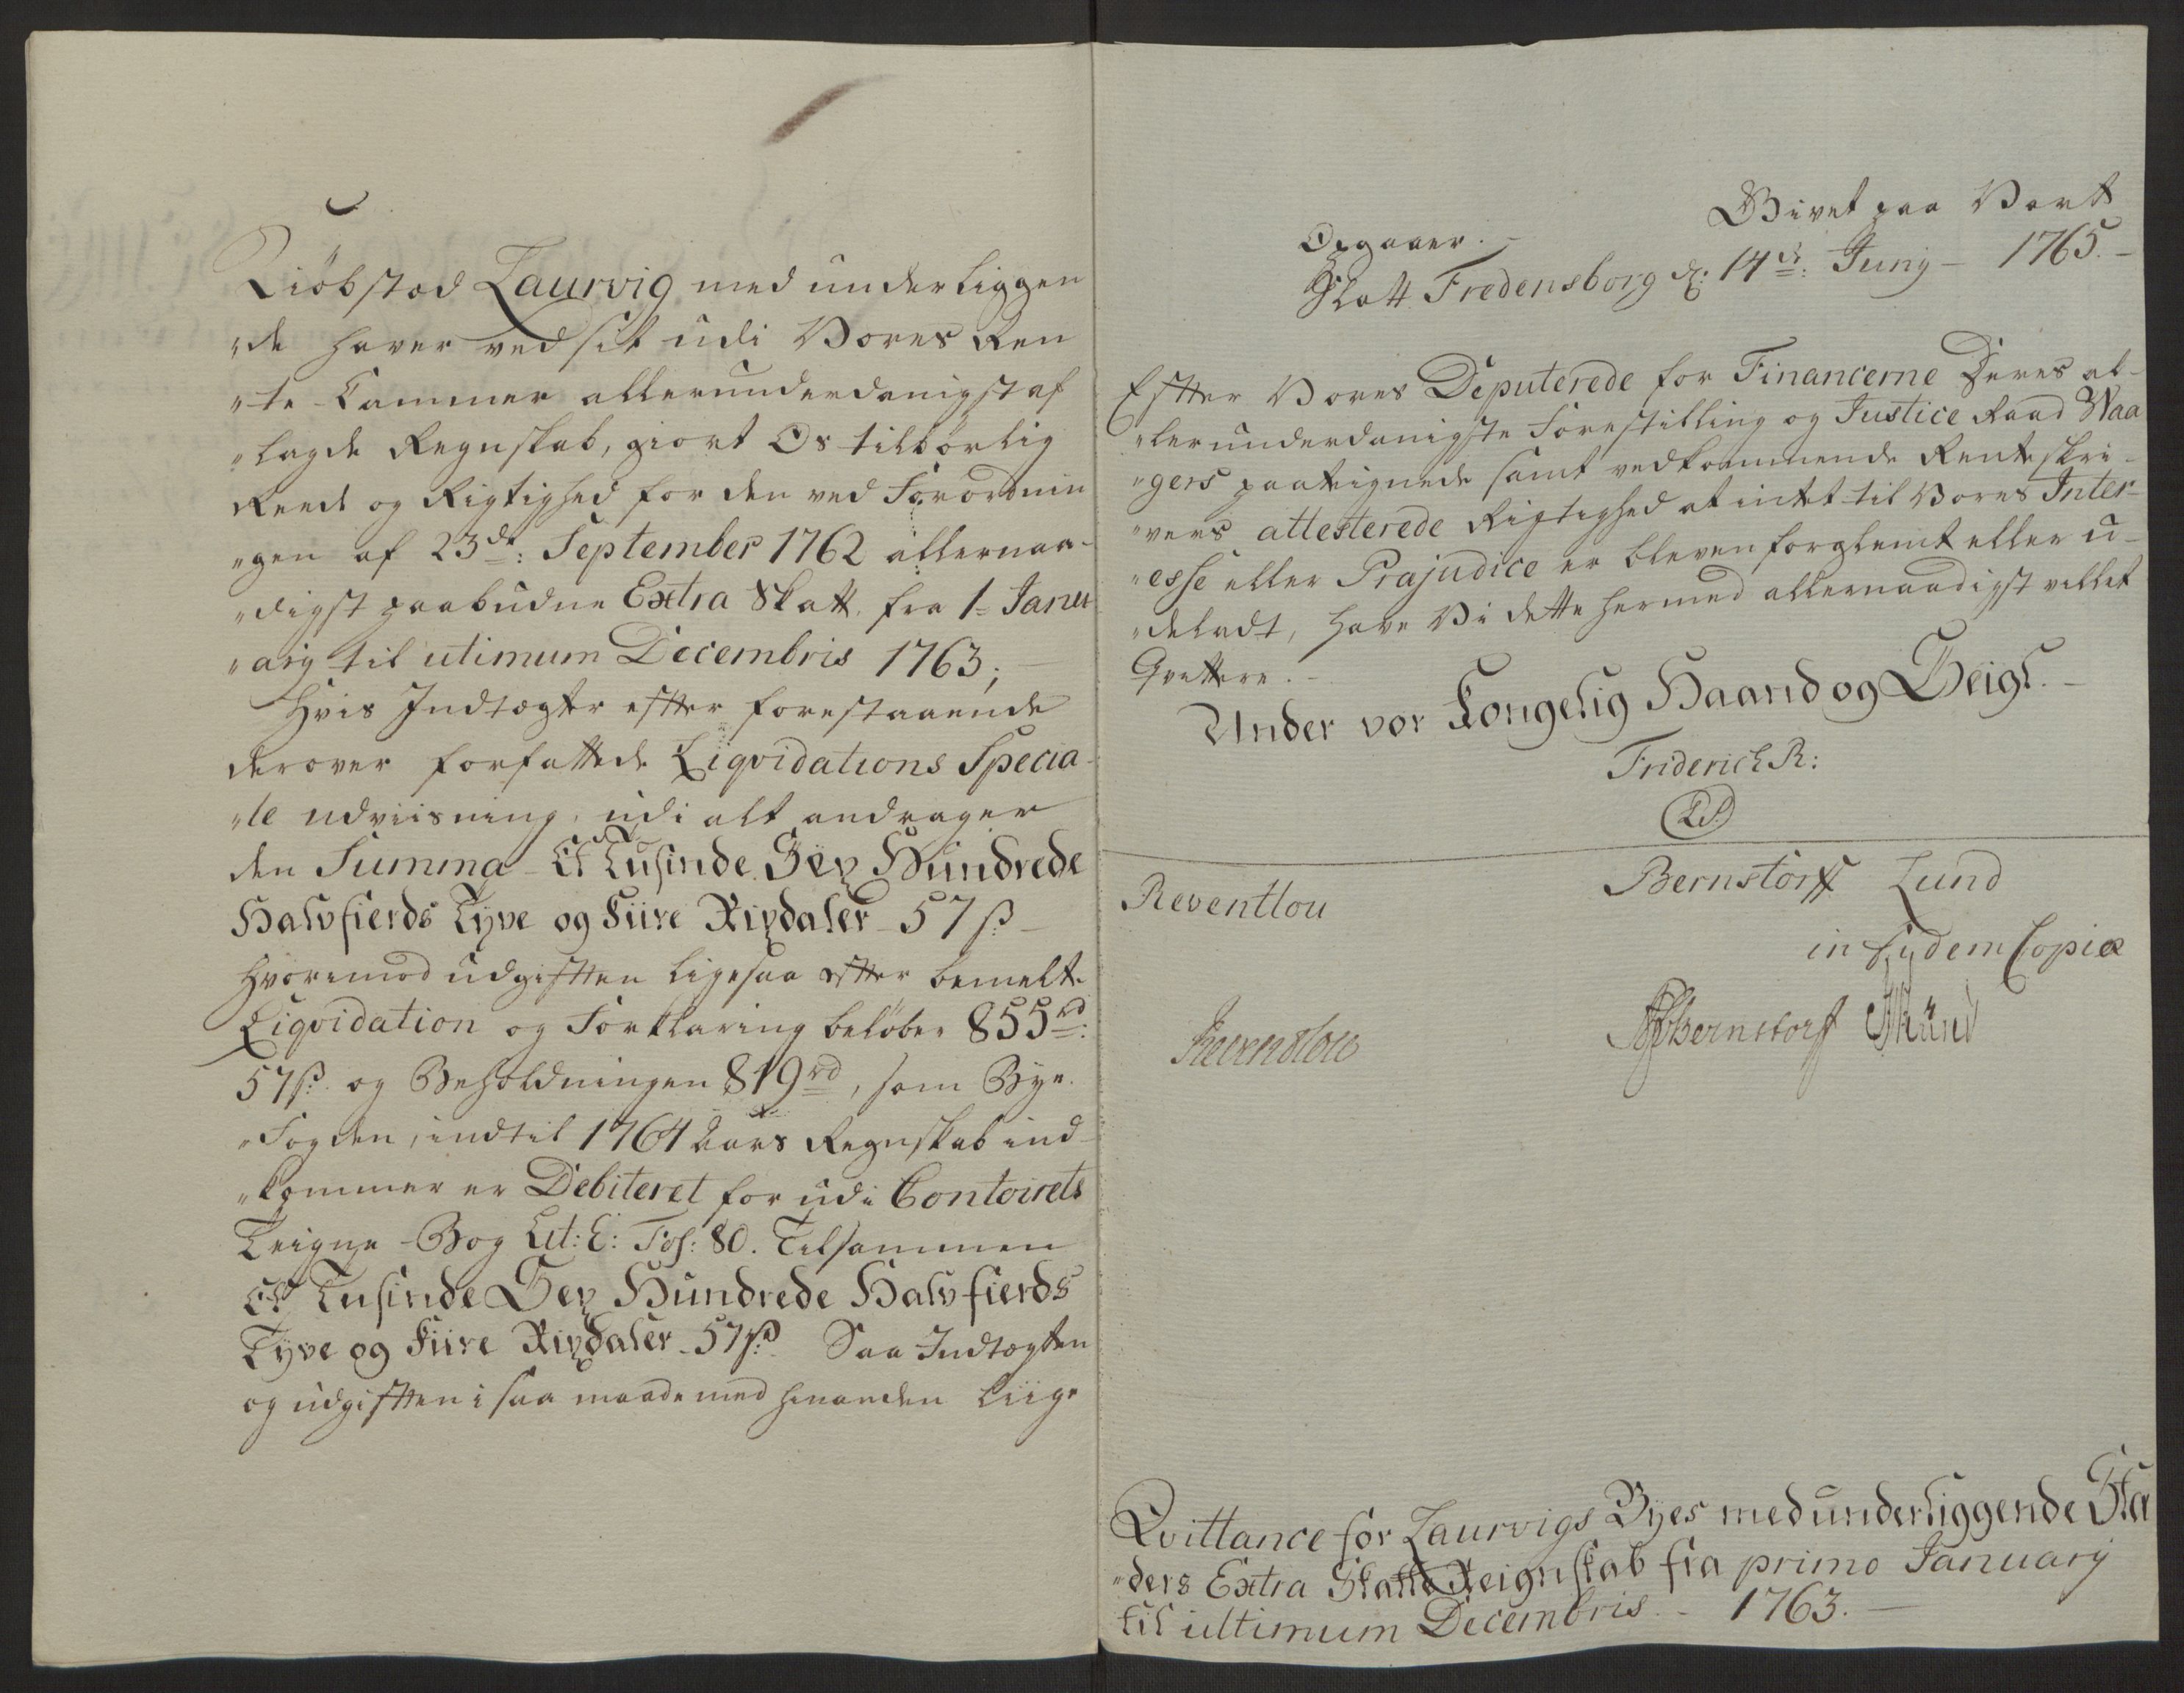 Kiöbstad Laurvig med underliggen
"de haver ved sit udi Vores Ren
"te-Cammer allerunderdanigst af
"lagde Regnskab, giort Os tilbørlig
Reede og Rigtighed for den ved Forordnin
"gen af 23de: September 1762 allernaa-
"digst paabudne Extra Skatt, fra 1= Janu
"arij til utimum Decembris 1763;
Hvis Indtægter efter forestaaende
derover forfattede Liqvidations Specia
"le udviisning, udi alt andrager
den Summa - Et Tusinde Sex Hundrede
Halvfierds Tyve og Fiire Rixdaler - 57 ß -
Hvorimod udgiften ligesaa efter bemelte
Liqvidation og Forklaring beløber 855 rd:
57 ß og Beholdningen 819 rd, som Bye
"Fogden, indtil 1764 Aars Regnskab ind-
"kommer er Debiteret for udi Contoirets
Teigne-Bog Lit: E: Fol: 80. Tilsammen
Et Tusinde Sex Hundrede Halvfierds
Tyve og Fiire Rixdaler - 57 ß. Saa Indtægten
og udgiften i saa maade med hinanden liige
Opgaaer. - Givet paa Vort
Slott Fredensborg d: 14de: Junij - 1765. -
Efter Vores Deputerede for Financerne Deres al-
"lerunderdanigste Forestilling og Justice Raad Waa
"gers paateignede samt vedkommende Renteskri-
"vers attesterede Rigtighed at intet til Vores Inter-
"esse eller Prajudice er bleven forglemt eller u-
"deladt, have Vi dette hermed allernaadigst villet
Qvittere. -
Under vor Kongelig Haand og Seigl. -
Friderich R:
L.S.
Reventlou Bernstorff Lund
in fidem Copiæ
Reventlou Bernstorff Lund
Qvittance for Laurvigs Byes med underliggende Sta
"ders Extra Skatte Reignskab fra primo Januarij
til ultimum Decembris - 1763. -